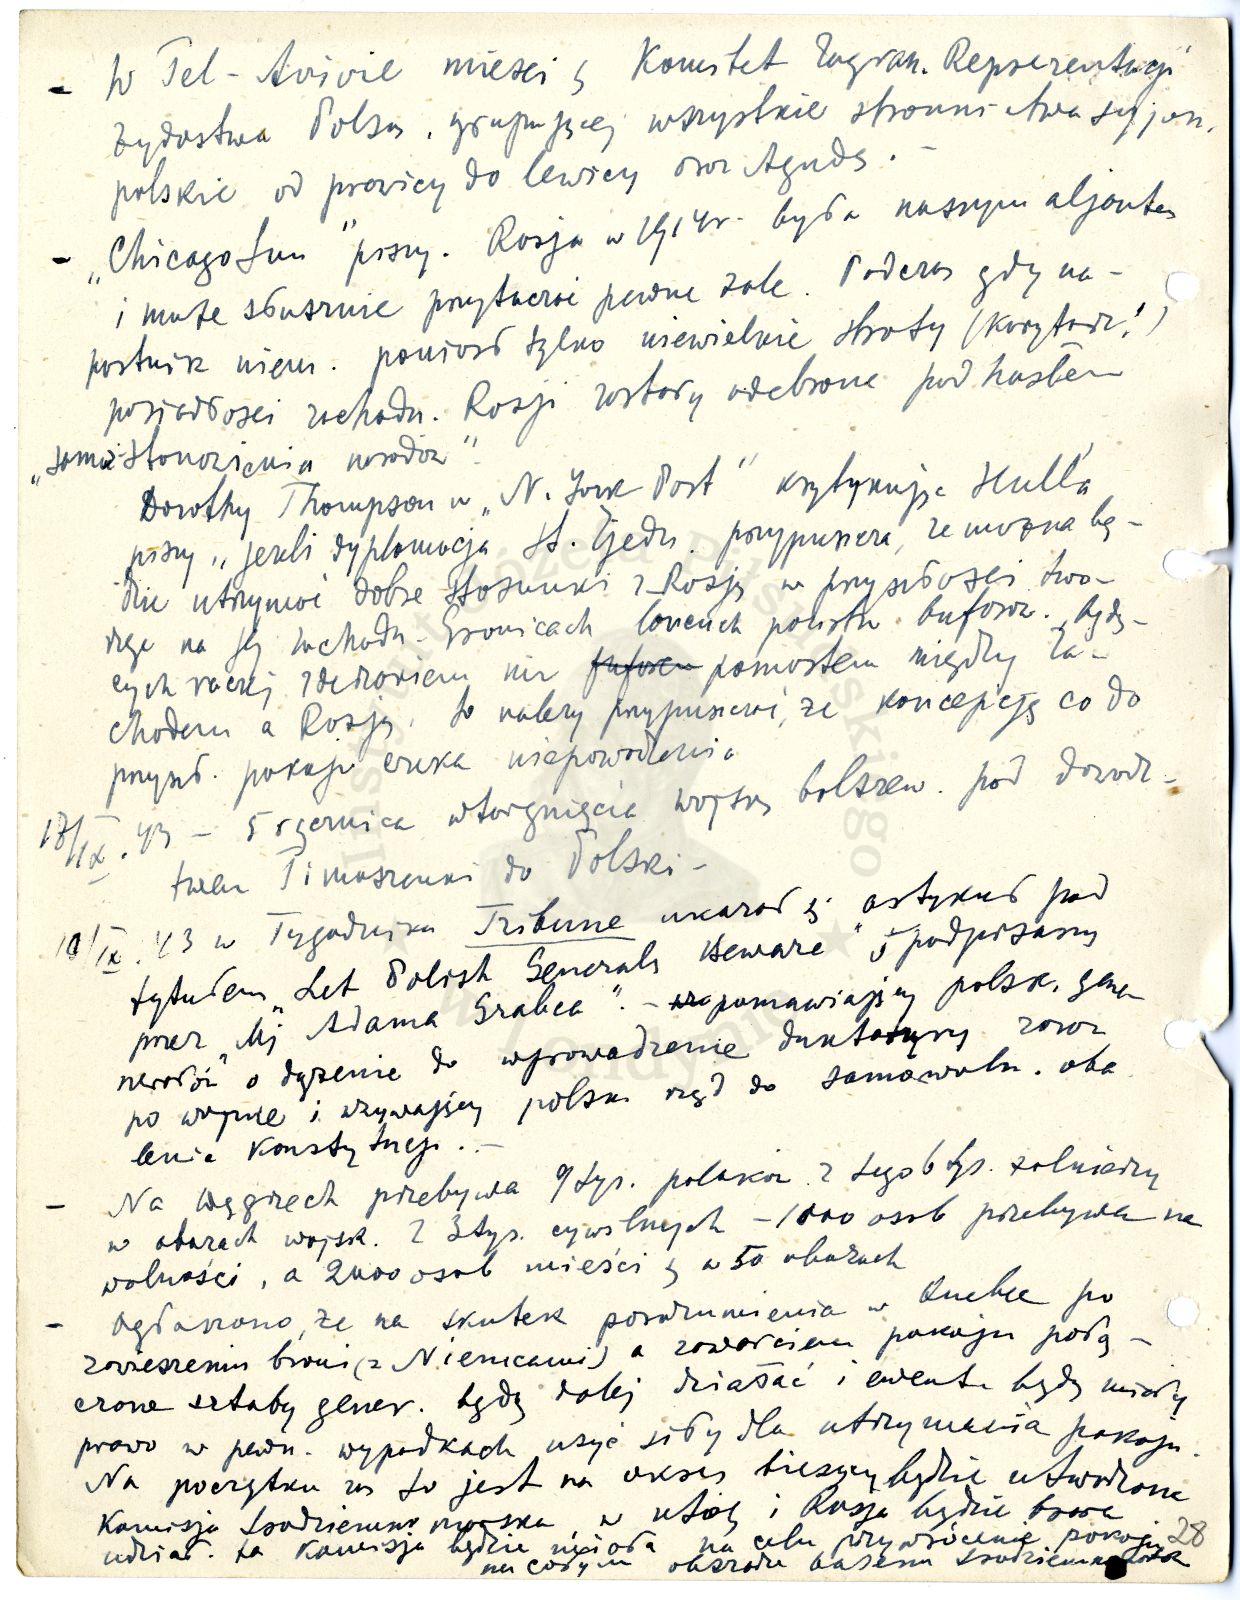 - W Tel-Avivie mieści ę Komitet Zagran. Reprezentacji
Żydostwa Polsk. grupującej wszystkie stronnictwa syjon.
polskie od prawicy do lewicy oraz Agudę. -
- „Chicago Sun" piszy. Rosja w 1914r. była naszym aljantem
i może słusznie przytaczać pewne żale. Podczas gdy na-
pastnik niem. poniósł tylko niewielkie straty (korytarz!)
posiadłości zachodn. Rosji zostały odebrane pod hasłem
„samostanowienia narodów".
Dorothy Thompson w „N. York Post" krytykując Hull'a
piszy „jeżeli dyplomacja St. Zjedn. przypuszcza, że można bę-
dzie utrzymać dobre stosunki z Rosją w przyszłości two-
rząc na jej zachodn. Granicach łańcuch państw buforow. będą-
cych raczej zderzakiem niż pomostem między Za-
chodem a Rosją, to należy przypuszczać, że koncepcję co do
przysł. pokoju czeka niepowodzenie
17/IX.43 - rocznica wtargnięcia wojsk bolszew. pod dowódz-
twem Timoszenki do Polski -
10/IX.43 w Tygodniku Tribune ukazał ę artykuł pod
tytułem „Let Polish Generals Beware" podpisany
przez „Mj Adama Grabca". - pomawiający polsk. gene-
rałów o dążenie do wprowadzenie dyktatury zaraz
po wojnie i wzywający polski rząd do samowoln. oba
lenia Konstytucji. -
- Na Węgrzech przebywa 9 tys. polaków z tego 6 tys. żołnierzy
w obozach wojsk. Z 3 tys. cywilnych - 1000 osób przebywa na
wolności, a 2000 osób mieści ę w 50 obozach
- Ogłoszono, że na skutek porozumienia w Quebec po
zawieszeniu broni (z Niemcami) a zawarciem pokoju połą-
czone sztaby gener. będą dalej działać i ewent. będą miały
prawo w pewn. wypadkach użyć siły dla utrzymania pokoju.
Na początku zaś to jest na okres bieżący będzie utworzona
Komisja Śródziemno morska, w której i Rosja będzie brała
udział. ta Komisja będzie miała na celu przywrócenie pokoju
na całym obszarze basenu Śródziemnomorsk
28
Instytut Józefa Piłsudskiego
w Londynie